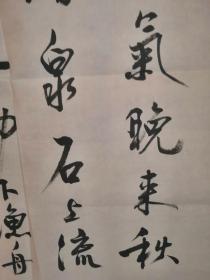 氣晚来秋
泉石上流
下漁舟